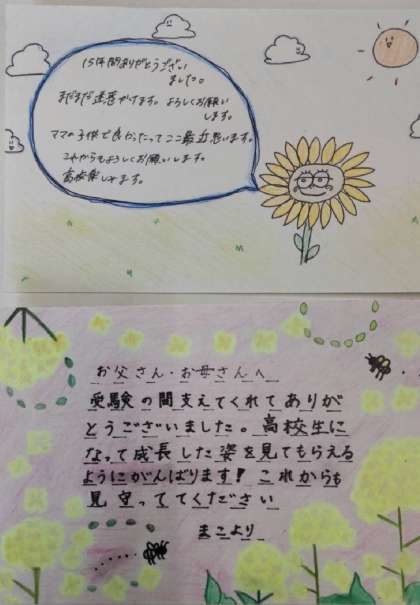 15年間ありがとうござい
ました。
まだまだ迷惑かけます。よろしくお願い
します。
ママの子供で良かったってここ最近思います。
これからもよろしくお願いします。
高校楽しみます。
お父さん・お母さんへ
受験の間支えてくれてありが
とうございました。高校生に
なって成長した姿を見てもらえる
ようにがんばります！これからも
見守っててください
まこより